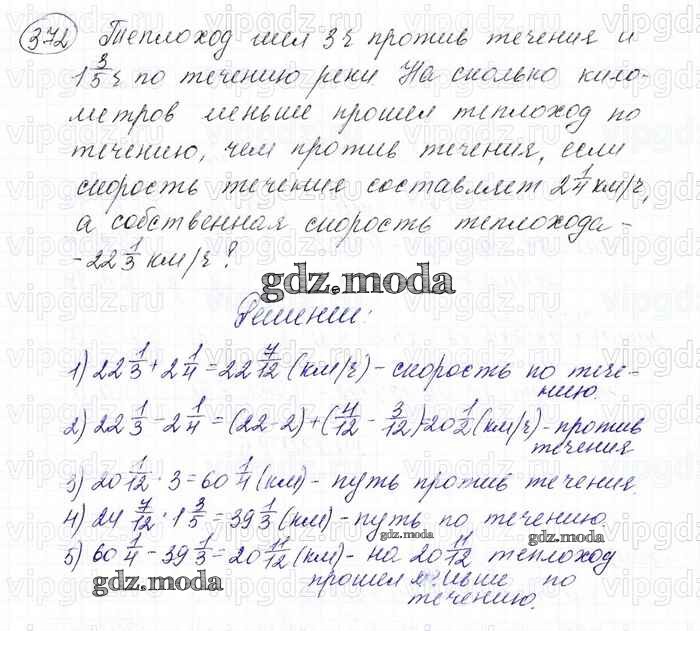 372 Теплоход шел 3ч против течения и
1 3/5 ч по течению реки. На сколько кило-
метров меньше прошел теплоход по
течению, чем против течения, если
скорость течения составляет 2 1/4 км/ч,
а собственная скорость теплохода -
- 22 1/3 км/ч?
gdz.moda
Решение:
1) 22 1/3 + 2 1/4 = 22 7/12 (км/ч) - скорость по тече-
нию.
2) 22 1/3 - 2 1/4 = (22-2) + (4/12 - 3/12) = 20 1/2 (км/ч) - против
течения
3) 20 1/12 · 3 = 60 1/4 (км) - путь против течения.
4) 24 7/12 · 1 3/5 = 39 1/3 (км) - путь по течению.
gdz.moda gdz.moda
5) 60 1/4 - 39 1/3 = 20 11/12 (км) - на 20 11/12 теплоход
gdz.moda
прошел меньше по
gdz.moda
течению.
vipgdz.ru